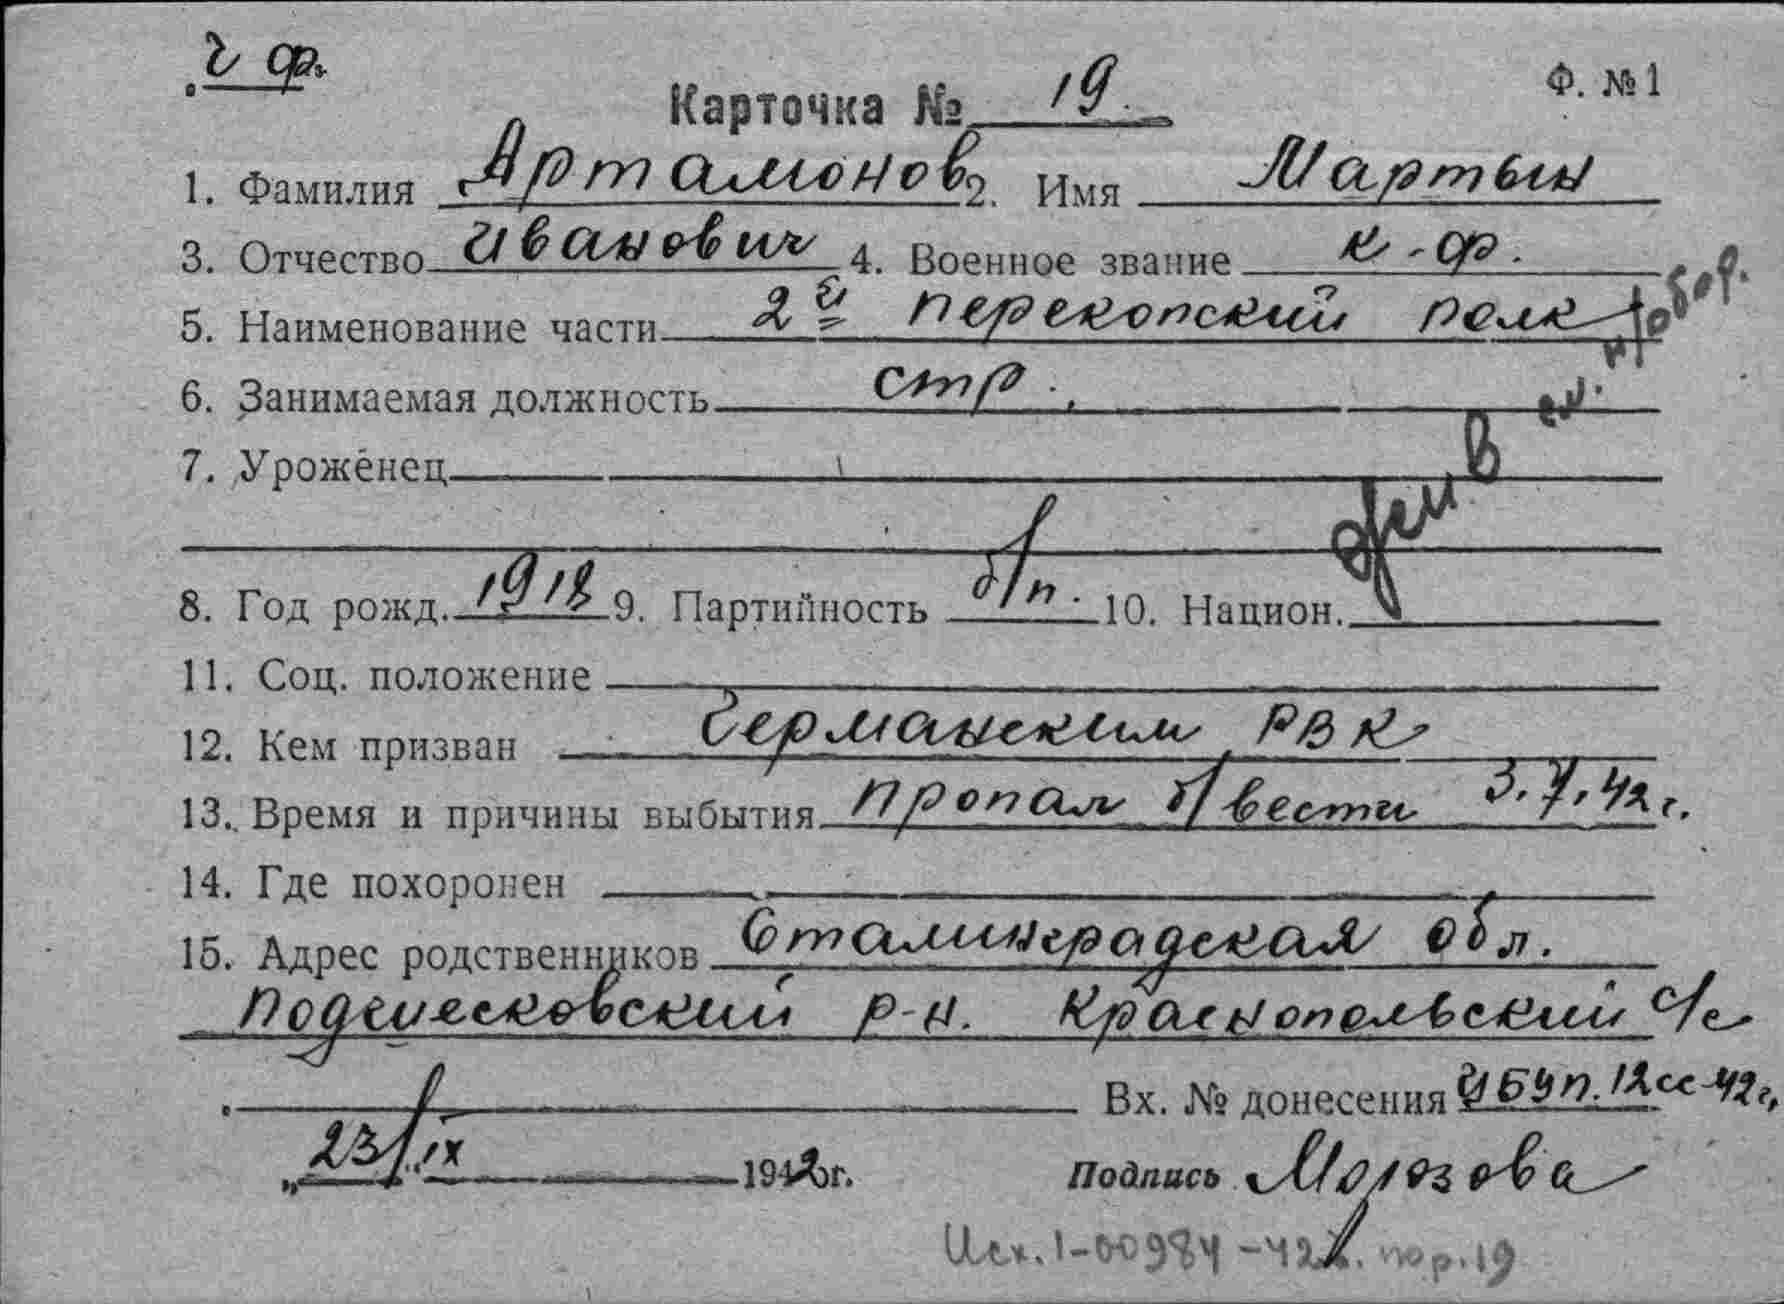 ч ф.
Карточка № 19
Ф. №1
1. Фамилия Артамонов 2. Имя Мартын
3. Отчество Иванович 4. Военное звание к-ф.
5. Наименование части 2й перекопский полк
6. Занимаемая должность стр.
7. Уроженец
8. Год рожд. 1918 9. Партийность б/п. 10. Национ.
11. Соц. положение
12. Кем призван Германским РВК
13. Время и причины выбытия Пропал б/вести 3.7.42 г.
14. Где похоронен
15. Адрес родственников Сталинградская обл.
Подтелковский р-н. Краснопольский с/с
Вх. № донесения 12сс-42г.
„23/IX 1942г. Подпись Морозова
Исх. 1-00984-42г. пор. 19